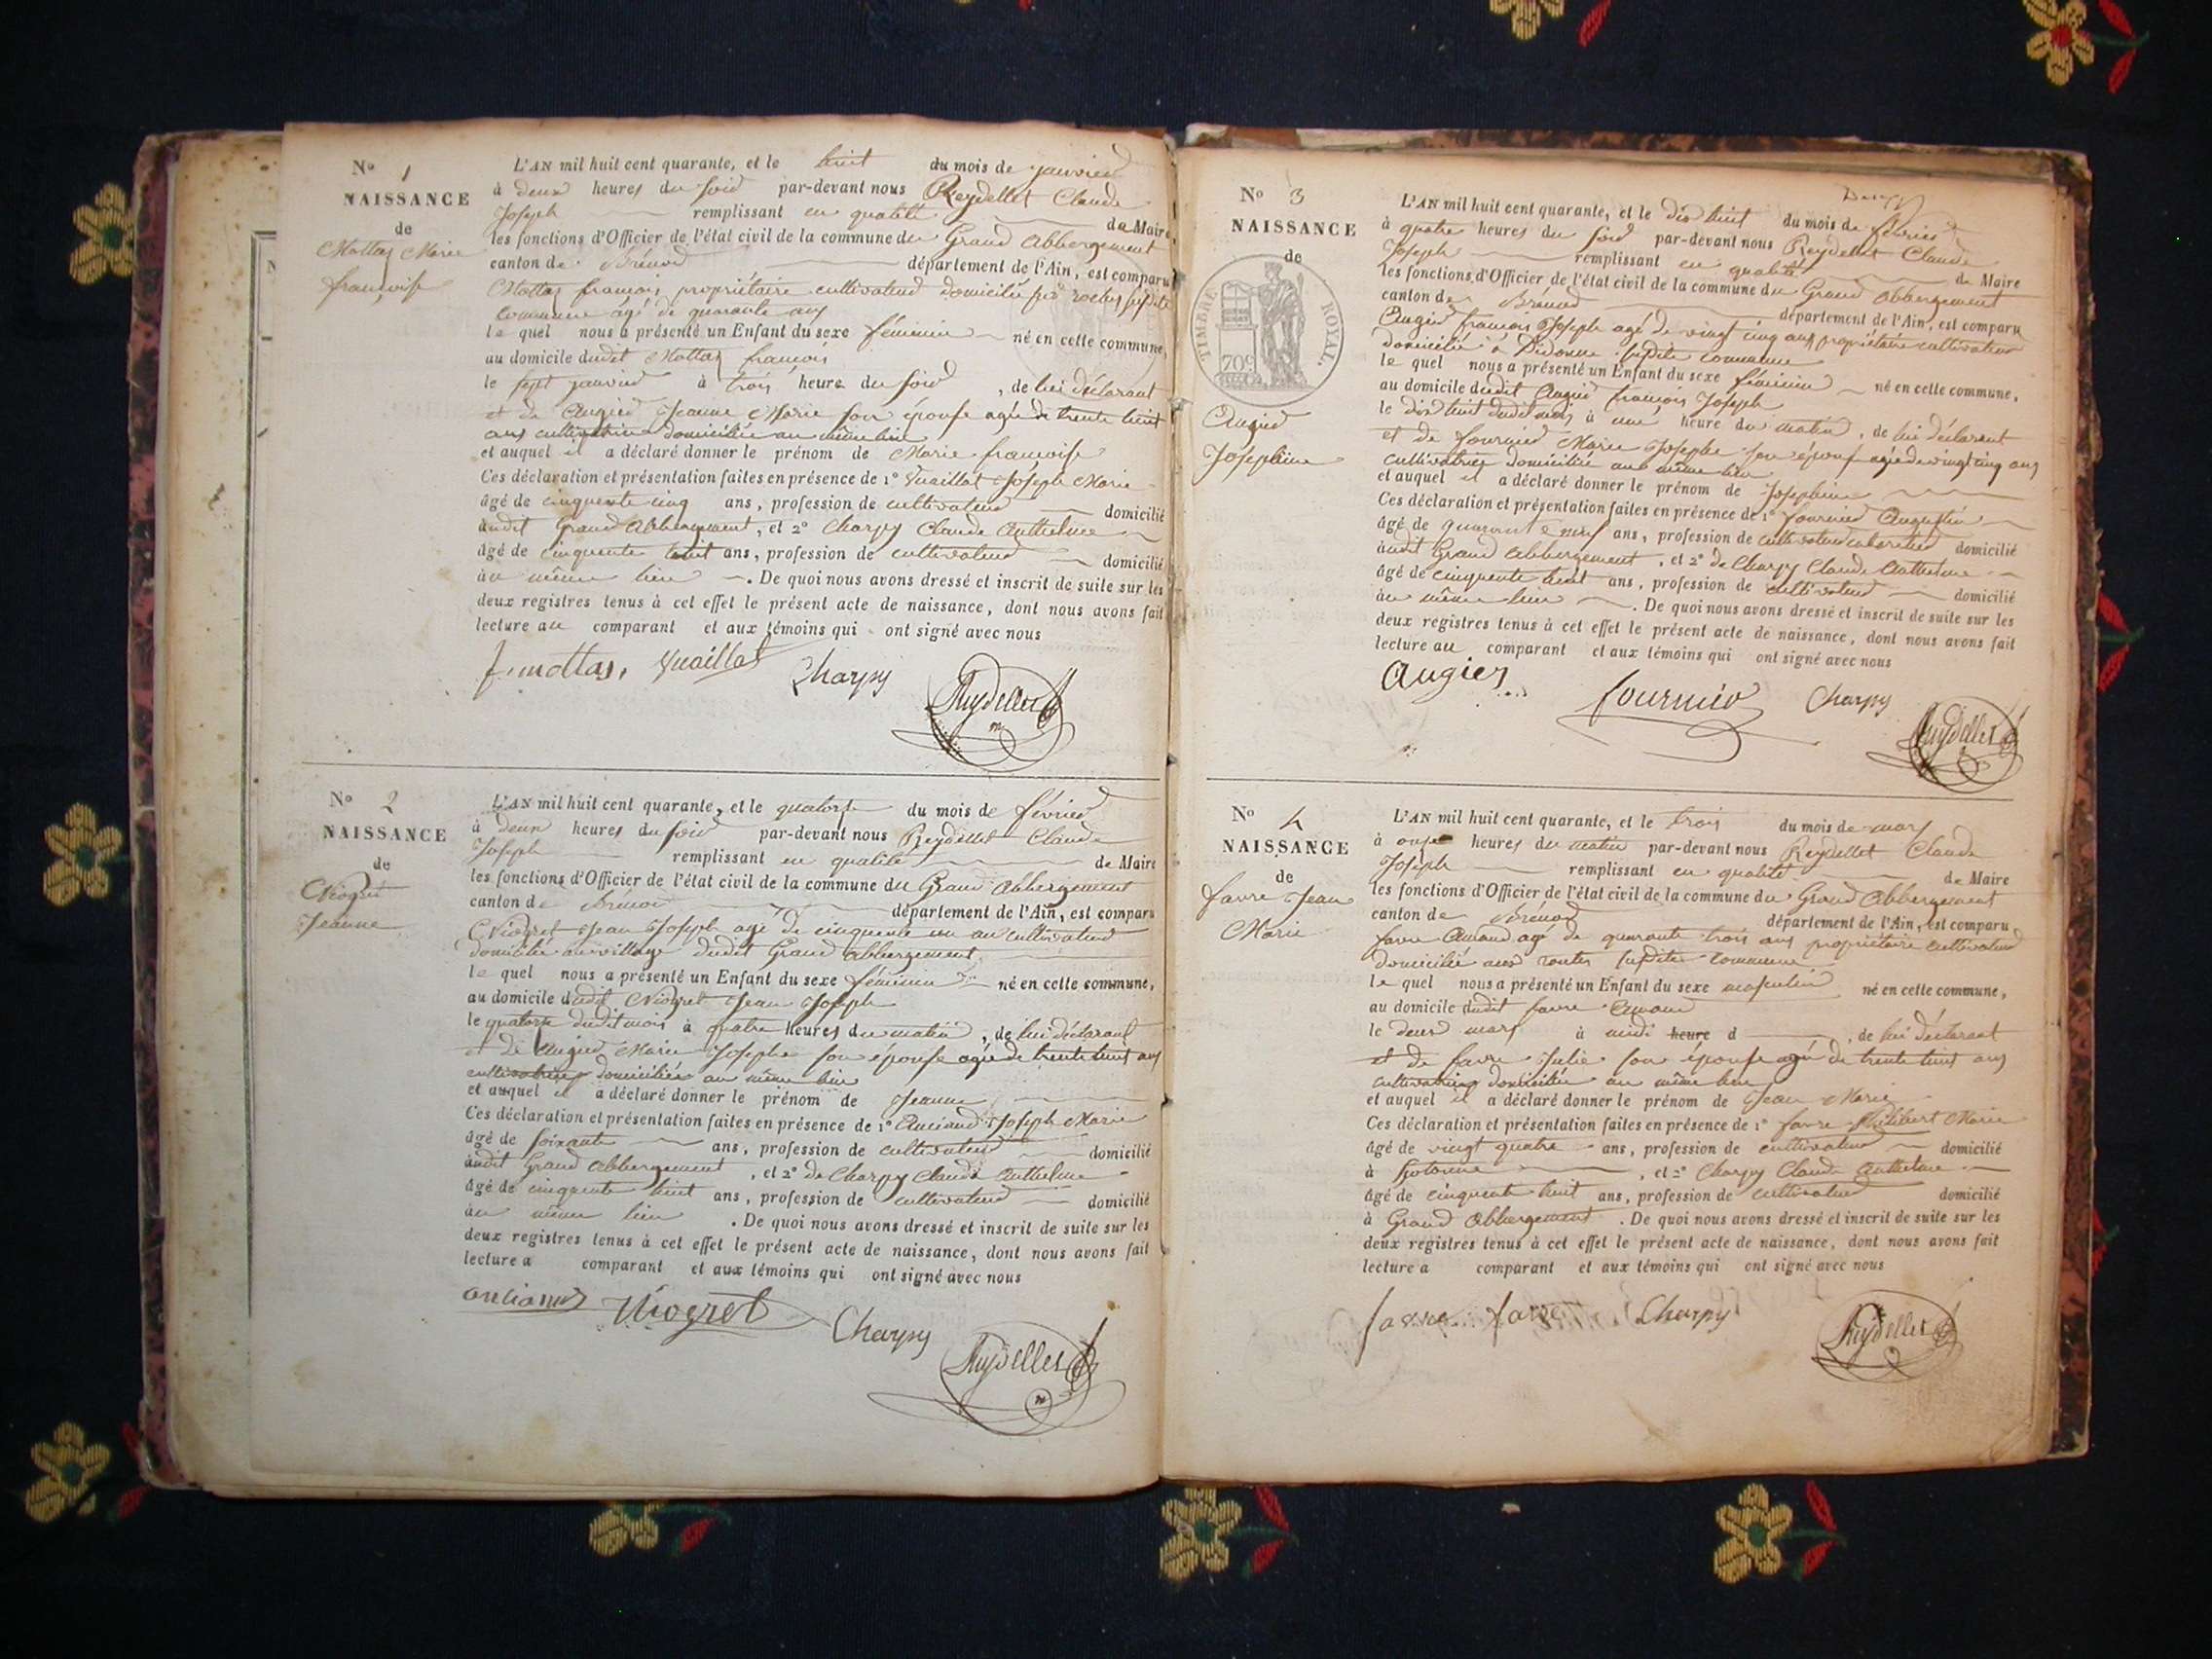 N° 1
NAISSANCE
de
Mottaz Marie
françoise
L'AN mil huit cent quarante, et le huit du mois de janvier
à deux heures du soir par-devant nous Reydellet Claude
Joseph remplissant en qualité de Maire
les fonctions d'Officier de l'état civil de la commune du Grand Abbergement
canton de Brénod département de l'Ain, est comparu
Mottaz françois propriétaire cultivateur domicilié susdite
commune âgé de quarante ans
le quel nous a présenté un Enfant du sexe féminin né en cette commune,
au domicile dudit Mottaz françois
le sept janvier à trois heure du soir, de lui déclarant
et de Augier Jeanne Marie son épouse agée de trente huit
ans cultivatrice domiciliée au même lieu
et auquel il a déclaré donner le prénom de Marie françoise
Ces déclaration et présentation faites en présence de 1° Vuaillat Joseph Marie
âgé de cinquante cinq ans, profession de cultivateur domicilié
audit Grand Abbergement, et 2° Charpy Claude Anthelme
âgé de cinquante huit ans, profession de cultivateur domicilié
au même lieu. De quoi nous avons dressé et inscrit de suite sur les
deux registres tenus à cet effet le présent acte de naissance, dont nous avons fait
lecture au comparant et aux témoins qui ont signé avec nous
f. mottaz, Vuaillat Charpy Reydellet
N° 2
NAISSANCE
de
Niogret
Jeanne
L'AN mil huit cent quarante, et le quatorze du mois de février
à deux heures du soir par-devant nous Reydellet Claude
Joseph remplissant en qualité de Maire
les fonctions d'Officier de l'état civil de la commune du Grand Abbergement
canton de Brenod département de l'Ain, est comparu
Niogret Jean Joseph agé de cinquante un an cultivateur
domicilié au village dudit Grand abbergement
le quel nous a présenté un Enfant du sexe féminin né en cette commune,
au domicile dudit Niogret Jean Joseph
le quatorze dudit mois à quatre heures du matin, de lui déclarant
et de Augier Marie Josephe son épouse agée de trente huit ans
cultivatrice domiciliée au même lieu
et auquel il a déclaré donner le prénom de Jeanne
Ces déclaration et présentation faites en présence de 1° Anciand Joseph Marie
âgé de soixante ans, profession de cultivateur domicilié
audit Grand abbergement, et 2° de Charpy Claude Anthelme
âgé de cinquante huit ans, profession de cultivateur domicilié
au même lieu. De quoi nous avons dressé et inscrit de suite sur les
deux registres tenus à cet effet le présent acte de naissance, dont nous avons fait
lecture a comparant et aux témoins qui ont signé avec nous
Niogret Charpy Reydellet
N° 3
NAISSANCE
de
TIMBRE ROYAL.
70c
Augier
Joséphine
L'AN mil huit cent quarante, et le dix huit du mois de février
à quatre heures du soir par-devant nous Reydellet Claude
Joseph remplissant en qualité de Maire
les fonctions d'Officier de l'état civil de la commune du Grand Abbergement
canton de Brénod département de l'Ain, est comparu
Augier françois Joseph agé de vingt cinq ans propriétaire cultivateur
domicilié à susdite commune
le quel nous a présenté un Enfant du sexe féminin né en cette commune,
au domicile dudit Augier françois Joseph
le dix huit dudit mois à une heure du matin, de lui déclarant
et de fournier Marie Josephe son épouse agée de vingt cinq ans
cultivatrice domiciliée au même lieu
et auquel il a déclaré donner le prénom de Joséphine
Ces déclaration et présentation faites en présence de 1° fournier Augustin
âgé de quarante neuf ans, profession de cultivateur cabaretier domicilié
audit Grand Abbergement, et 2° de Charpy Claude Anthelme
âgé de cinquante huit ans, profession de cultivateur domicilié
au même lieu. De quoi nous avons dressé et inscrit de suite sur les
deux registres tenus à cet effet le présent acte de naissance, dont nous avons fait
lecture au comparant et aux témoins qui ont signé avec nous
Augier fournier Charpy Reydellet
N° 4
NAISSANCE
de
favre Jean
Marie
L'AN mil huit cent quarante, et le trois du mois de mars
à onze heures du matin par-devant nous Reydellet Claude
Joseph remplissant en qualité de Maire
les fonctions d'Officier de l'état civil de la commune du Grand Abbergement
canton de Brénod département de l'Ain, est comparu
favre Amand agé de quarante trois ans propriétaire cultivateur
domicilié aux routes susdite commune
le quel nous a présenté un Enfant du sexe masculin né en cette commune,
au domicile dudit favre Amand
le deux mars à midi heure d, de lui déclarant
et de favre Julie son épouse agée de trente huit ans
cultivatrice domiciliée au même lieu
et auquel il a déclaré donner le prénom de Jean Marie
Ces déclaration et présentation faites en présence de 1° favre Philibert Marie
âgé de vingt quatre ans, profession de cultivateur domicilié
à hotonne, et 2° Charpy Claude Anthelme
âgé de cinquante huit ans, profession de cultivateur domicilié
à Grand Abbergement. De quoi nous avons dressé et inscrit de suite sur les
deux registres tenus à cet effet le présent acte de naissance, dont nous avons fait
lecture a comparant et aux témoins qui ont signé avec nous
favre favre Charpy Reydellet